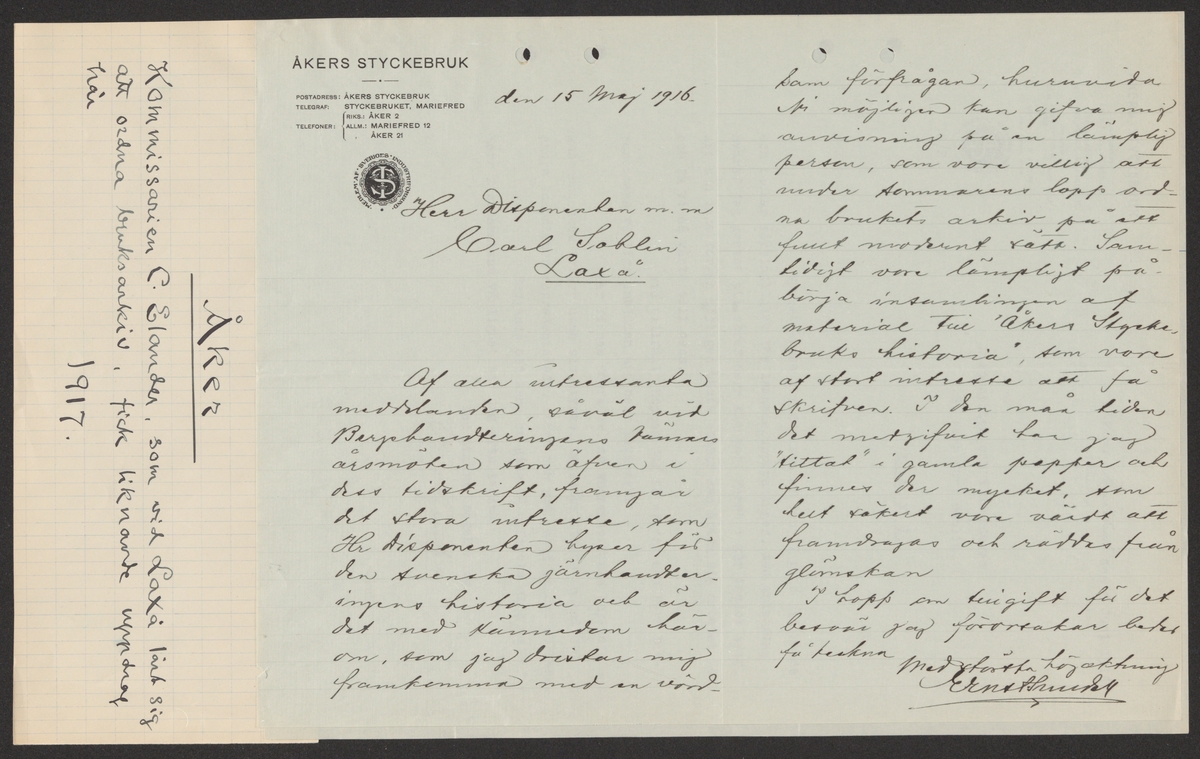 Åker
Kommissarien C. Elander, som vid Laxå lärt sig
att ordna bruksarkiv, fick liknande uppdrag
här 1917.
ÅKERS STYCKEBRUK
POSTADRESS: ÅKERS STYCKEBRUK
TELEGRAF: STYCKEBRUKET, MARIEFRED
TELEFONER: RIKS.: ÅKER 2
ALLM.: MARIEFRED 12
ÅKER 21
MEDLEM AF SVERIGES INDUSTRIFÖRBUND
den 15 Maj 1916.
Herr Disponenten m. m
Carl Sahlin
Laxå.
Af alla intressanta
meddelanden, såväl vid
Bergshandteringens Vänners
årsmöten som äfven i
dess tidskrift, framgår
det stora intresse, som
Hr Disponenten hyser för
den svenska järnhandter-
ingens historia och är
det med kännedom här-
om, som jag dristar mig
framkomma med en vörd-
sam förfrågan, huruvida
Ni möjligen kan gifva mig
anvisning på en lämplig
person, som vore villig att
under sommarens lopp ord-
na brukets arkiv på ett
fullt modernt sätt. Sam-
tidigt vore lämpligt på-
börja insamlingen af
material till "Åkers Stycke-
bruks historia", som vore
af stort intresse att få
skrifven. I den mån tiden
det medgifvit har jag
"tittat" i gamla papper och
finnes der mycket, som
helt säkert vore värdt att
framdragas och räddas från
glömskan
I hopp om tillgift för det
besvär jag förorsakar beder
få teckna
Med största högaktning
Ernst